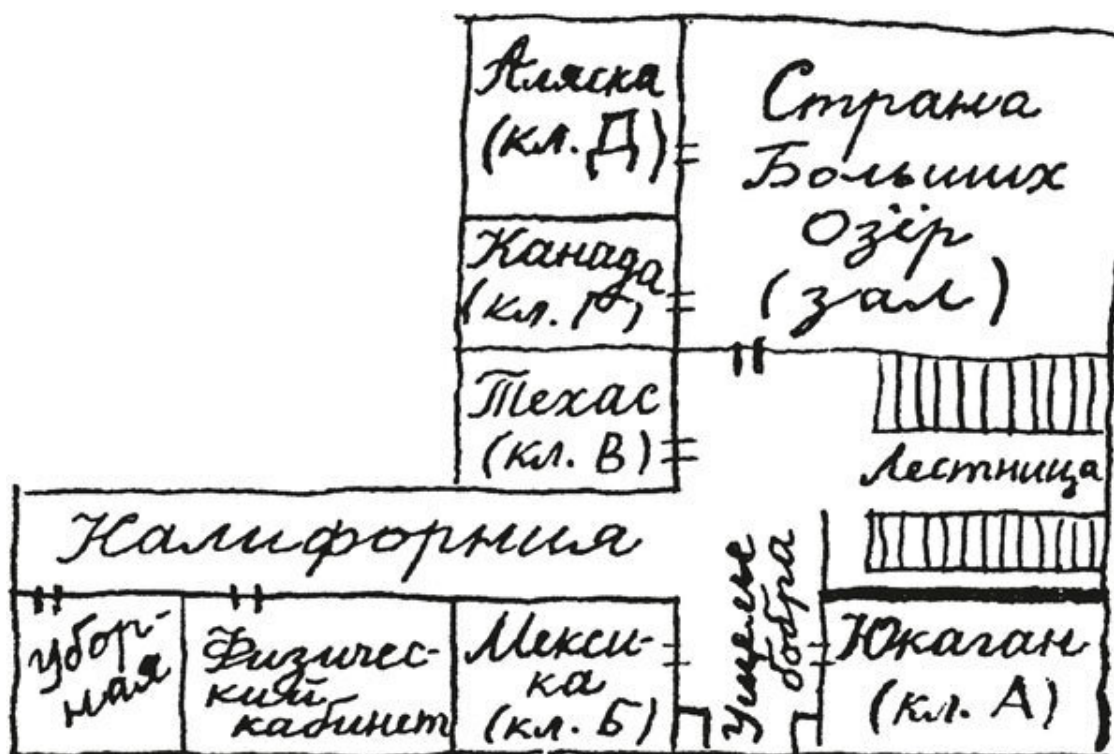 Аляска
(кл. Д)
Страна
Больших
Озёр
(зал)
Канада
(кл. Г)
Техас
(кл. В)
Лестница
Калифорния
Ущелье
бобра
Убор-
ная
Физичес-
кий
кабинет
Мекси-
ка
(кл. Б)
Юкаган
(кл. А)